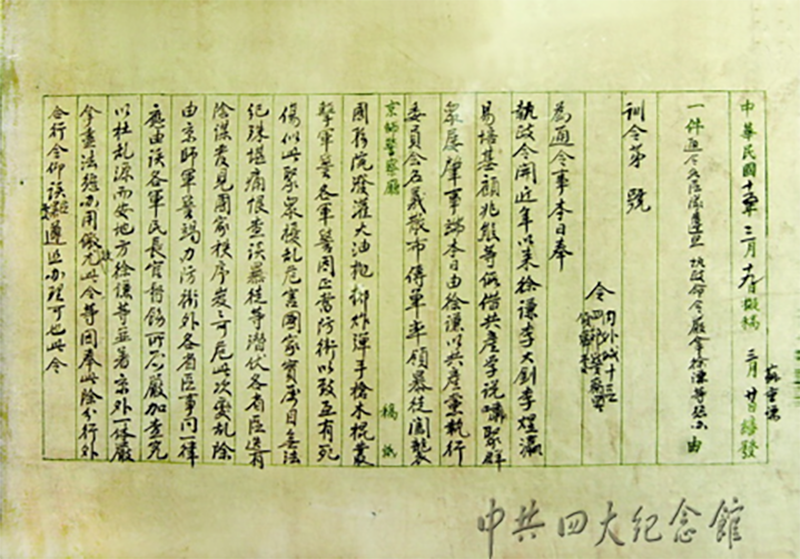 中華民國十五年三月十九日擬稿 三月廿日繕發
一件通令各區隊遵照 執政命令嚴拿徐謙等懲辦 由
訓令第 號
令 內外城十三區
為通令事本日奉
執政令開近年以來徐謙李大釗李煜瀛
易培基顧兆熊等假借共產學說嘯聚群
衆屢肇事端本日由徐謙以共產黨執行
委員會名義散布傳單率領暴徒闖襲
京師警察廳 稿紙
國務院潑灌火油拋擲炸彈手槍木棍叢
擊軍警各軍警因正當防衛以致互有死
傷似此聚衆擾亂危害國家實屬目無法
紀殊堪痛恨查該暴徒等潛伏各省區迭有
陰謀發見國家秩序岌岌可危此次變亂除
由京師軍警竭力防衛外各省區事同一律
應由該各軍民長官督飭所屬嚴加查究
以杜亂源而安地方徐謙等並著京外一體嚴
拿盡法懲辦用儆效尤此令等因奉此除分行外
合行令仰該遵照辦理可也此令
中共四大纪念館